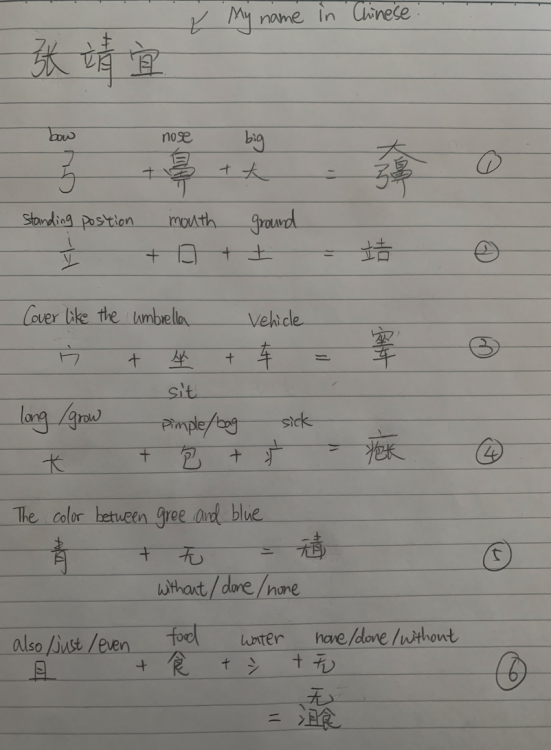 My name in Chinese
张靖宜
bow nose big
弓 + 鼻 + 大 = ①
standing position mouth ground
立 + 口 + 土 = ②
Cover like the umbrella Vehicle
宀 + 坐 + 车 = ③
sit
long/grow pimple/bag sick
长 + 包 + 疒 = ④
The color between gree and blue
青 + 无 = ⑤
without/done/none
also/just/even food water none/done/without
且 + 食 + 氵 + 无 ⑥
=